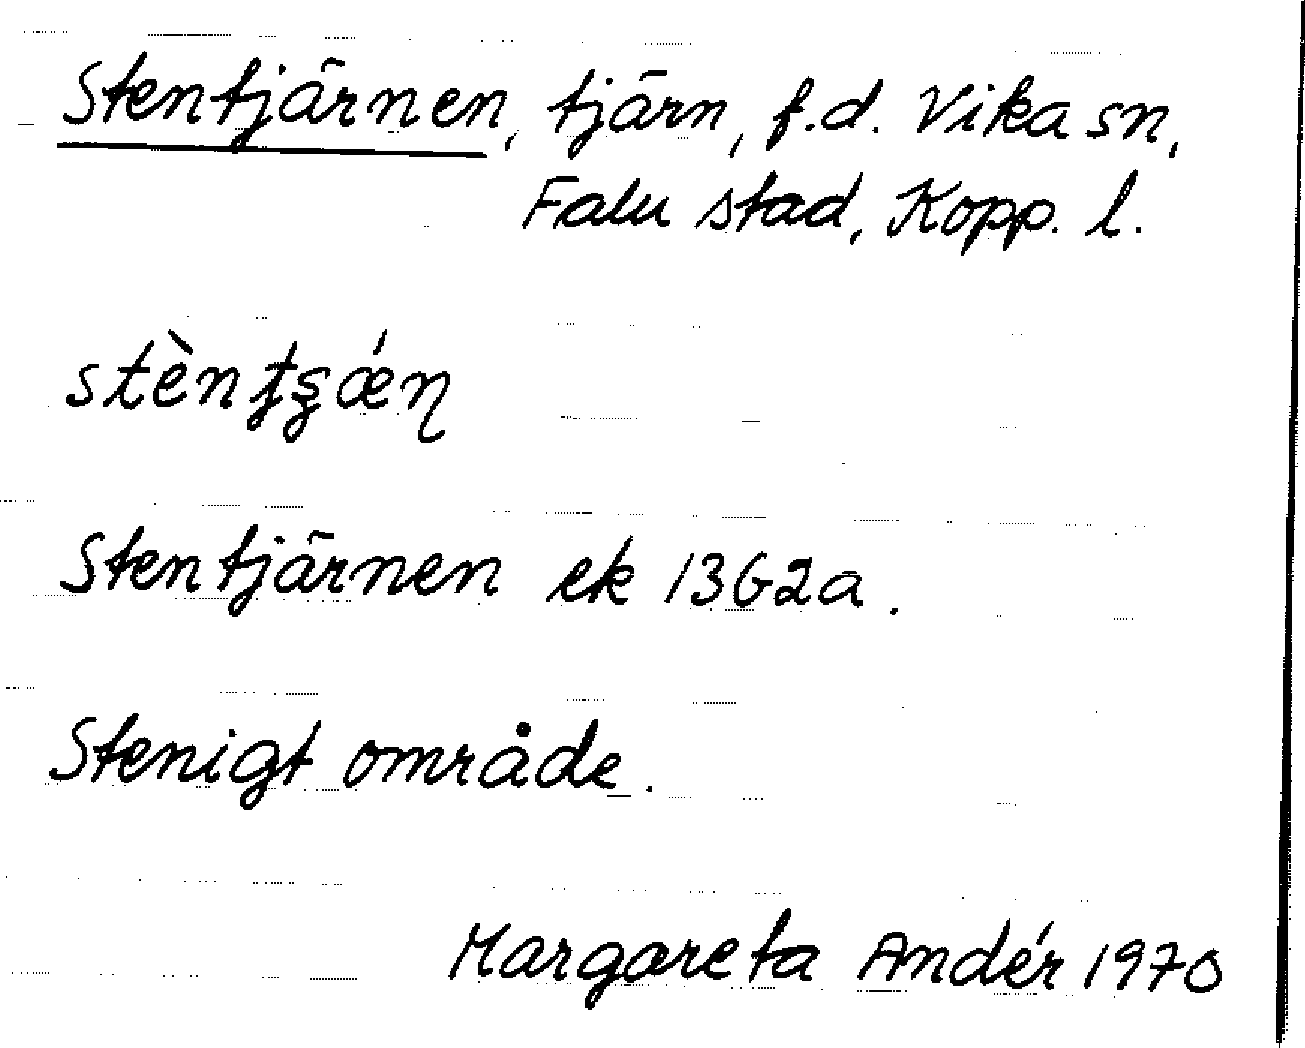 Stentjärnen, tjärn, f.d. Vika sn,
Falu stad, Kopp. l.
stènʈʂǽɳ
Stentjärnen ek 13G2a.
Stenigt område.
Margareta Andér 1970